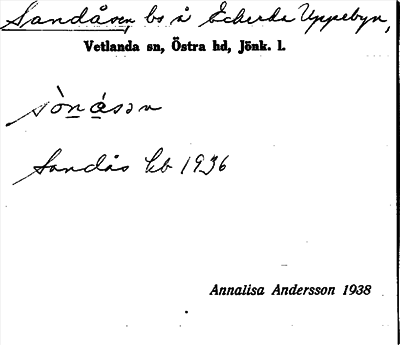 Sandåsen, bs å Ekerda Uppebyn,
Vetlanda sn, Östra hd, Jönk. l.
sònásən
Sandås kb 1936
Annalisa Andersson 1938